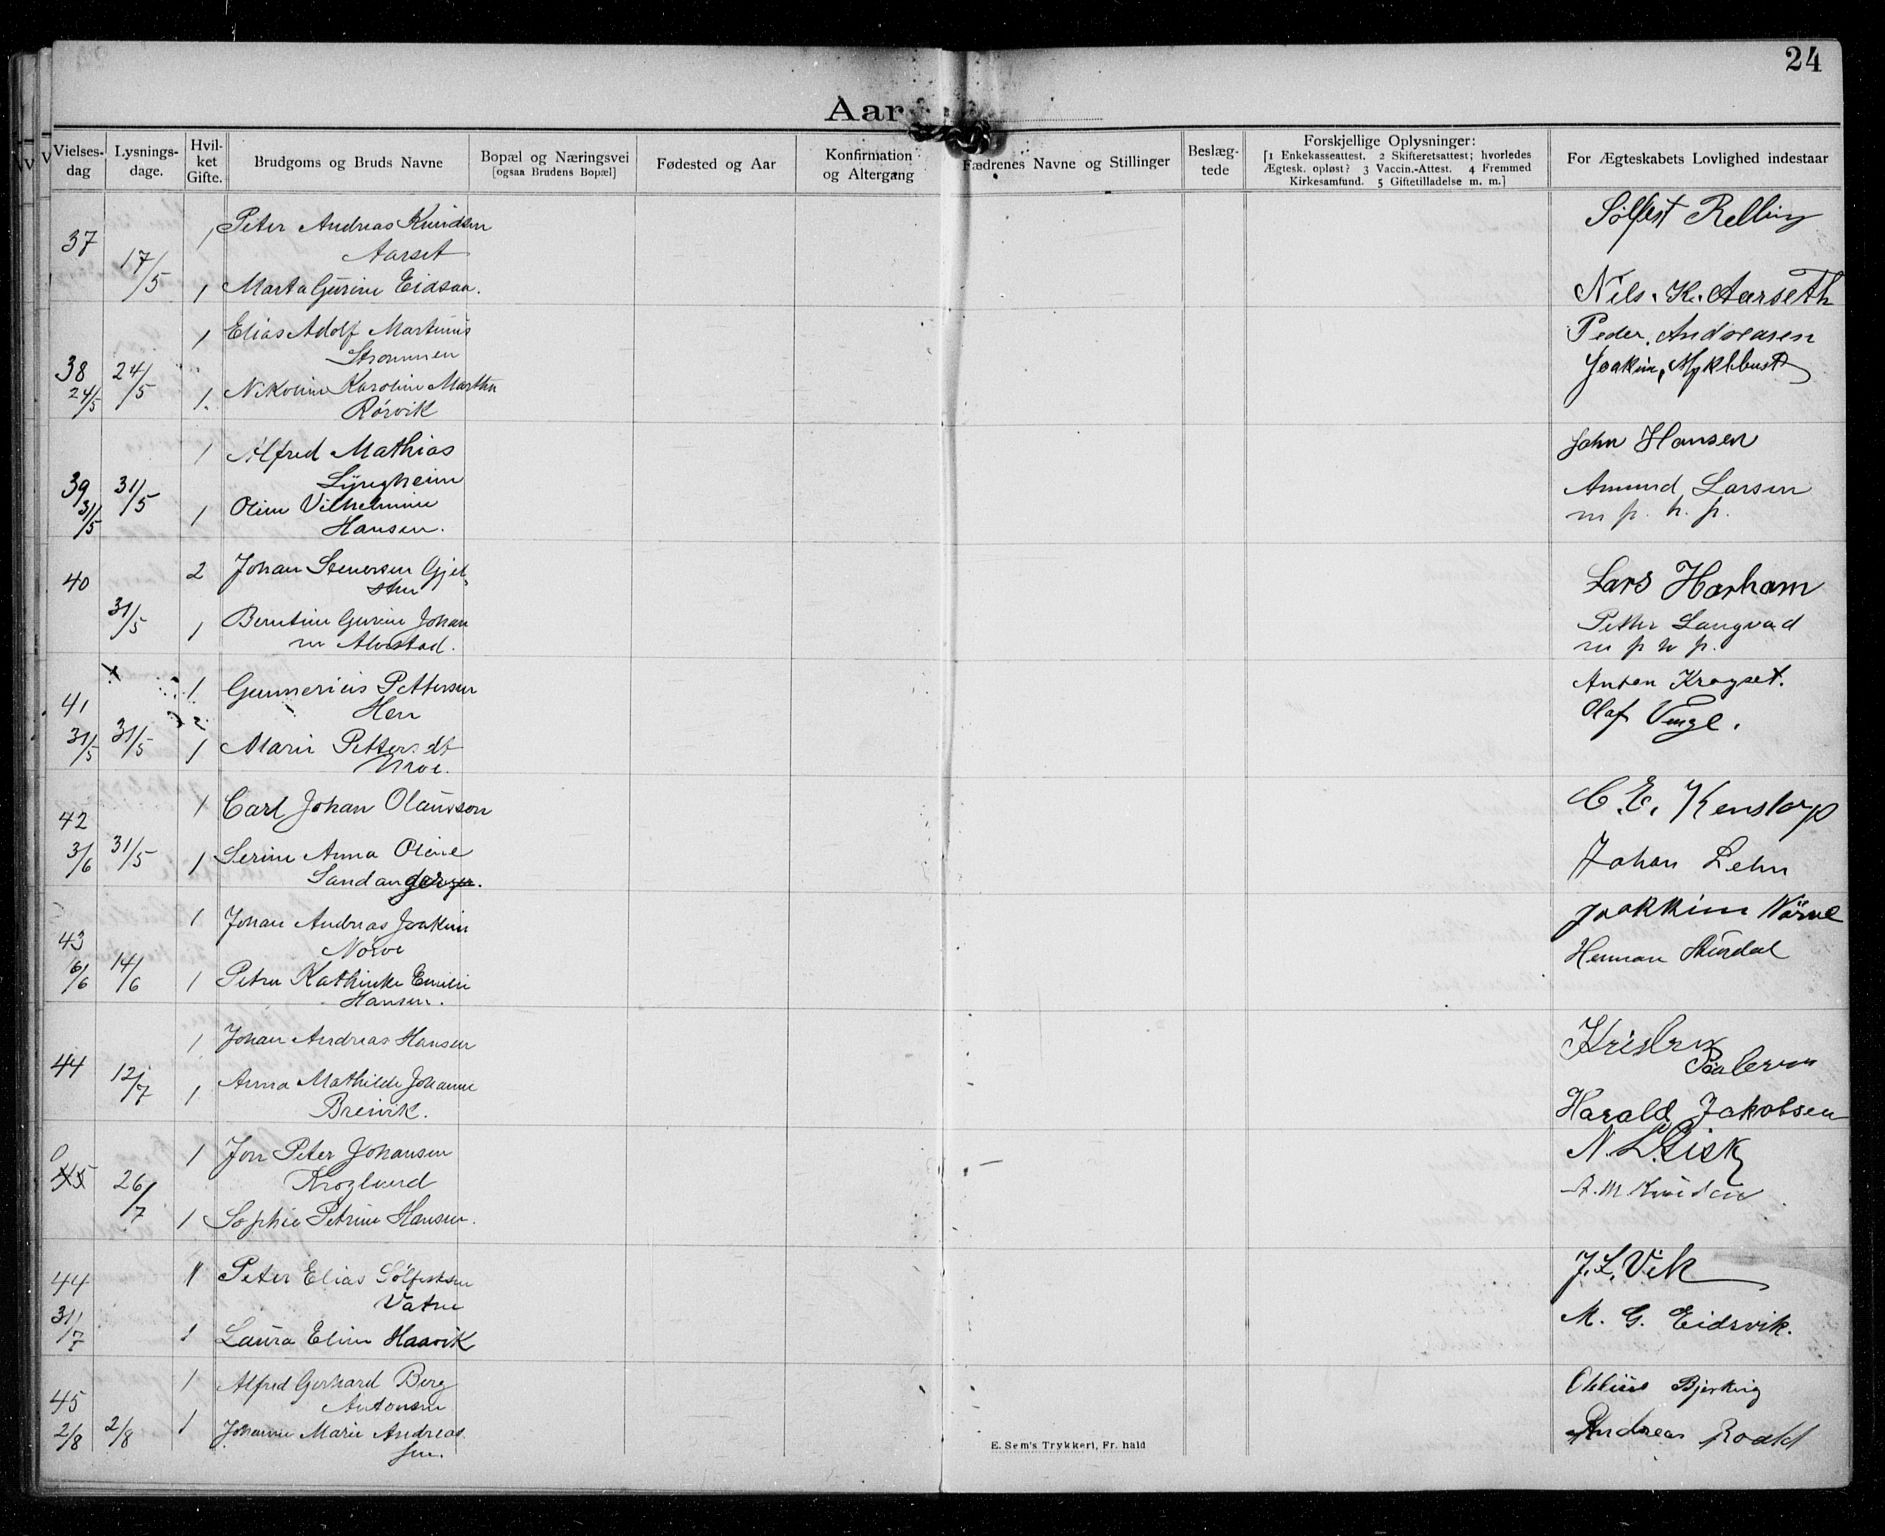 24
Aar
Vielses-
dag
Lysnings-
dage.
Hvil-
ket
Gifte.
Brudgoms og Bruds Navne
Bopæl og Næringsvei
[ogsaa Brudens Bopæl]
Fødested og Aar
Konfirmation
og Altergang
Fædrenes Navne og Stillinger
Beslæg-
tede
Forskjellige Oplysninger:
[1 Enkekasseattest. 2 Skifteretsattest; hvorledes
Ægtesk. opløst? 3 Vaccin.-Attest. 4 Fremmed
Kirkesamfund. 5 Giftetilladelse m. m.]
For Ægteskabets Lovlighed indestaar
37 17/5
1 Peter Andreas Knudsen
Aarset
1 Marta Gurine Eidsaa.
Sølfest Relling
Nils. K. Aarseth
38 24/5 24/5
1 Elias Adolf Martinus
Strømmen
1. Nikoline Karoline Martha
Rørvik
Peder Andreasen
Joakim Myklebust
39 31/5 31/5
1 Alfred Mathias
Lyngheim
1 Oline Vilhelmine
Hansen.
John Hansen
Amund Larsen
m. p. h. p.
40 31/5
2 Johan Stenersen Gjel
sten
1 Berntine Gurine Johan
ne Alvestad.
Lars Harham
Petter Langvad
m p h p.
41 31/5 31/5
1 Gunnerius Pettersen
Hen
1 Marie Pettersdt
Nroe.
Anton Krogset.
Olaf Vinge.
42 3/6 31/5
1 Carl Johan Olausson
1 Serine Anna Oline
Sandanger.
C. E. Kenstorp
Johan Lehn
43 6/6 14/6
1 Johan Andreas Joakim
Nørve
1 Petra Kathinke Emilie
Hansen.
Joakkim Nörve
Herman Stördal
44 12/7
1 Johan Andreas Hansen
1 Anna Mathilde Johanne
Breivik.
Harald Jakobsen
0
45 26/7
1 Jon Peter Johansen
Kroglund
1 Sophie Petrine Hansen.
N. L. Risk
A. M Knudsen
44 31/7
1 Peter Elias Sölfestsen
Vatne
1 Laura Eline Haavik
J. L. Vik
M. G. Eidsvik.
45 2/8 2/8
1 Alfred Gerhard Berg
Antonsen
1 Johanne Marie Andreas
sen.
Oktius Bjerkvig
Andreas Roald
E. Sem's Trykkeri, Fr. hald